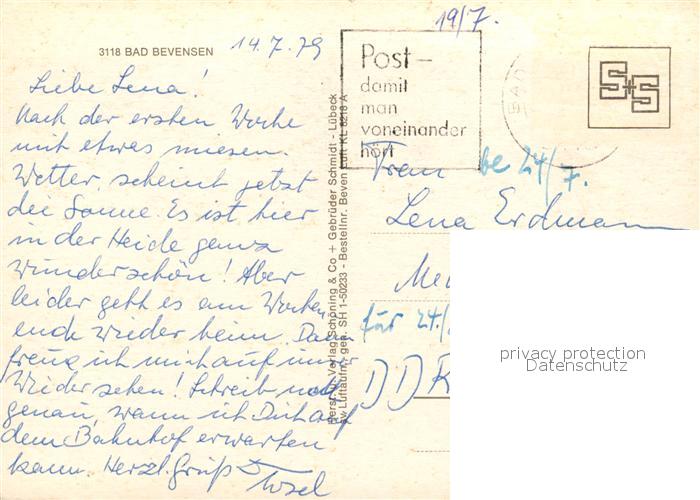 3118 BAD BEVENSEN
14.7.79
Liebe Lena!
Nach der ersten Woche
mit etwas miesem
Wetter, scheint jetzt
die Sonne. Es ist hier
in der Heide ganz
wunderschön! Aber
leider geht es am Wochen
ende wieder heim. Dann
freue ich mich auf unser
Wiedersehen! Schreib noch
genau, wann ich Dich auf
dem Bahnhof erwarten
kann. Herzl. Grüß
Hersg. u. Verlag Schöning & Co + Gebrüder Schmidt - Lübeck
Luftaufn. gen. SH 1-50233 - Bestellnr. Beven Luft KL 8218 A
19/7.
Post-
damit
man
voneinander
hört
S+S
Frau
be 24/7.
Lena Erdmann
für 24./
DDR
privacy protection
Datenschutz